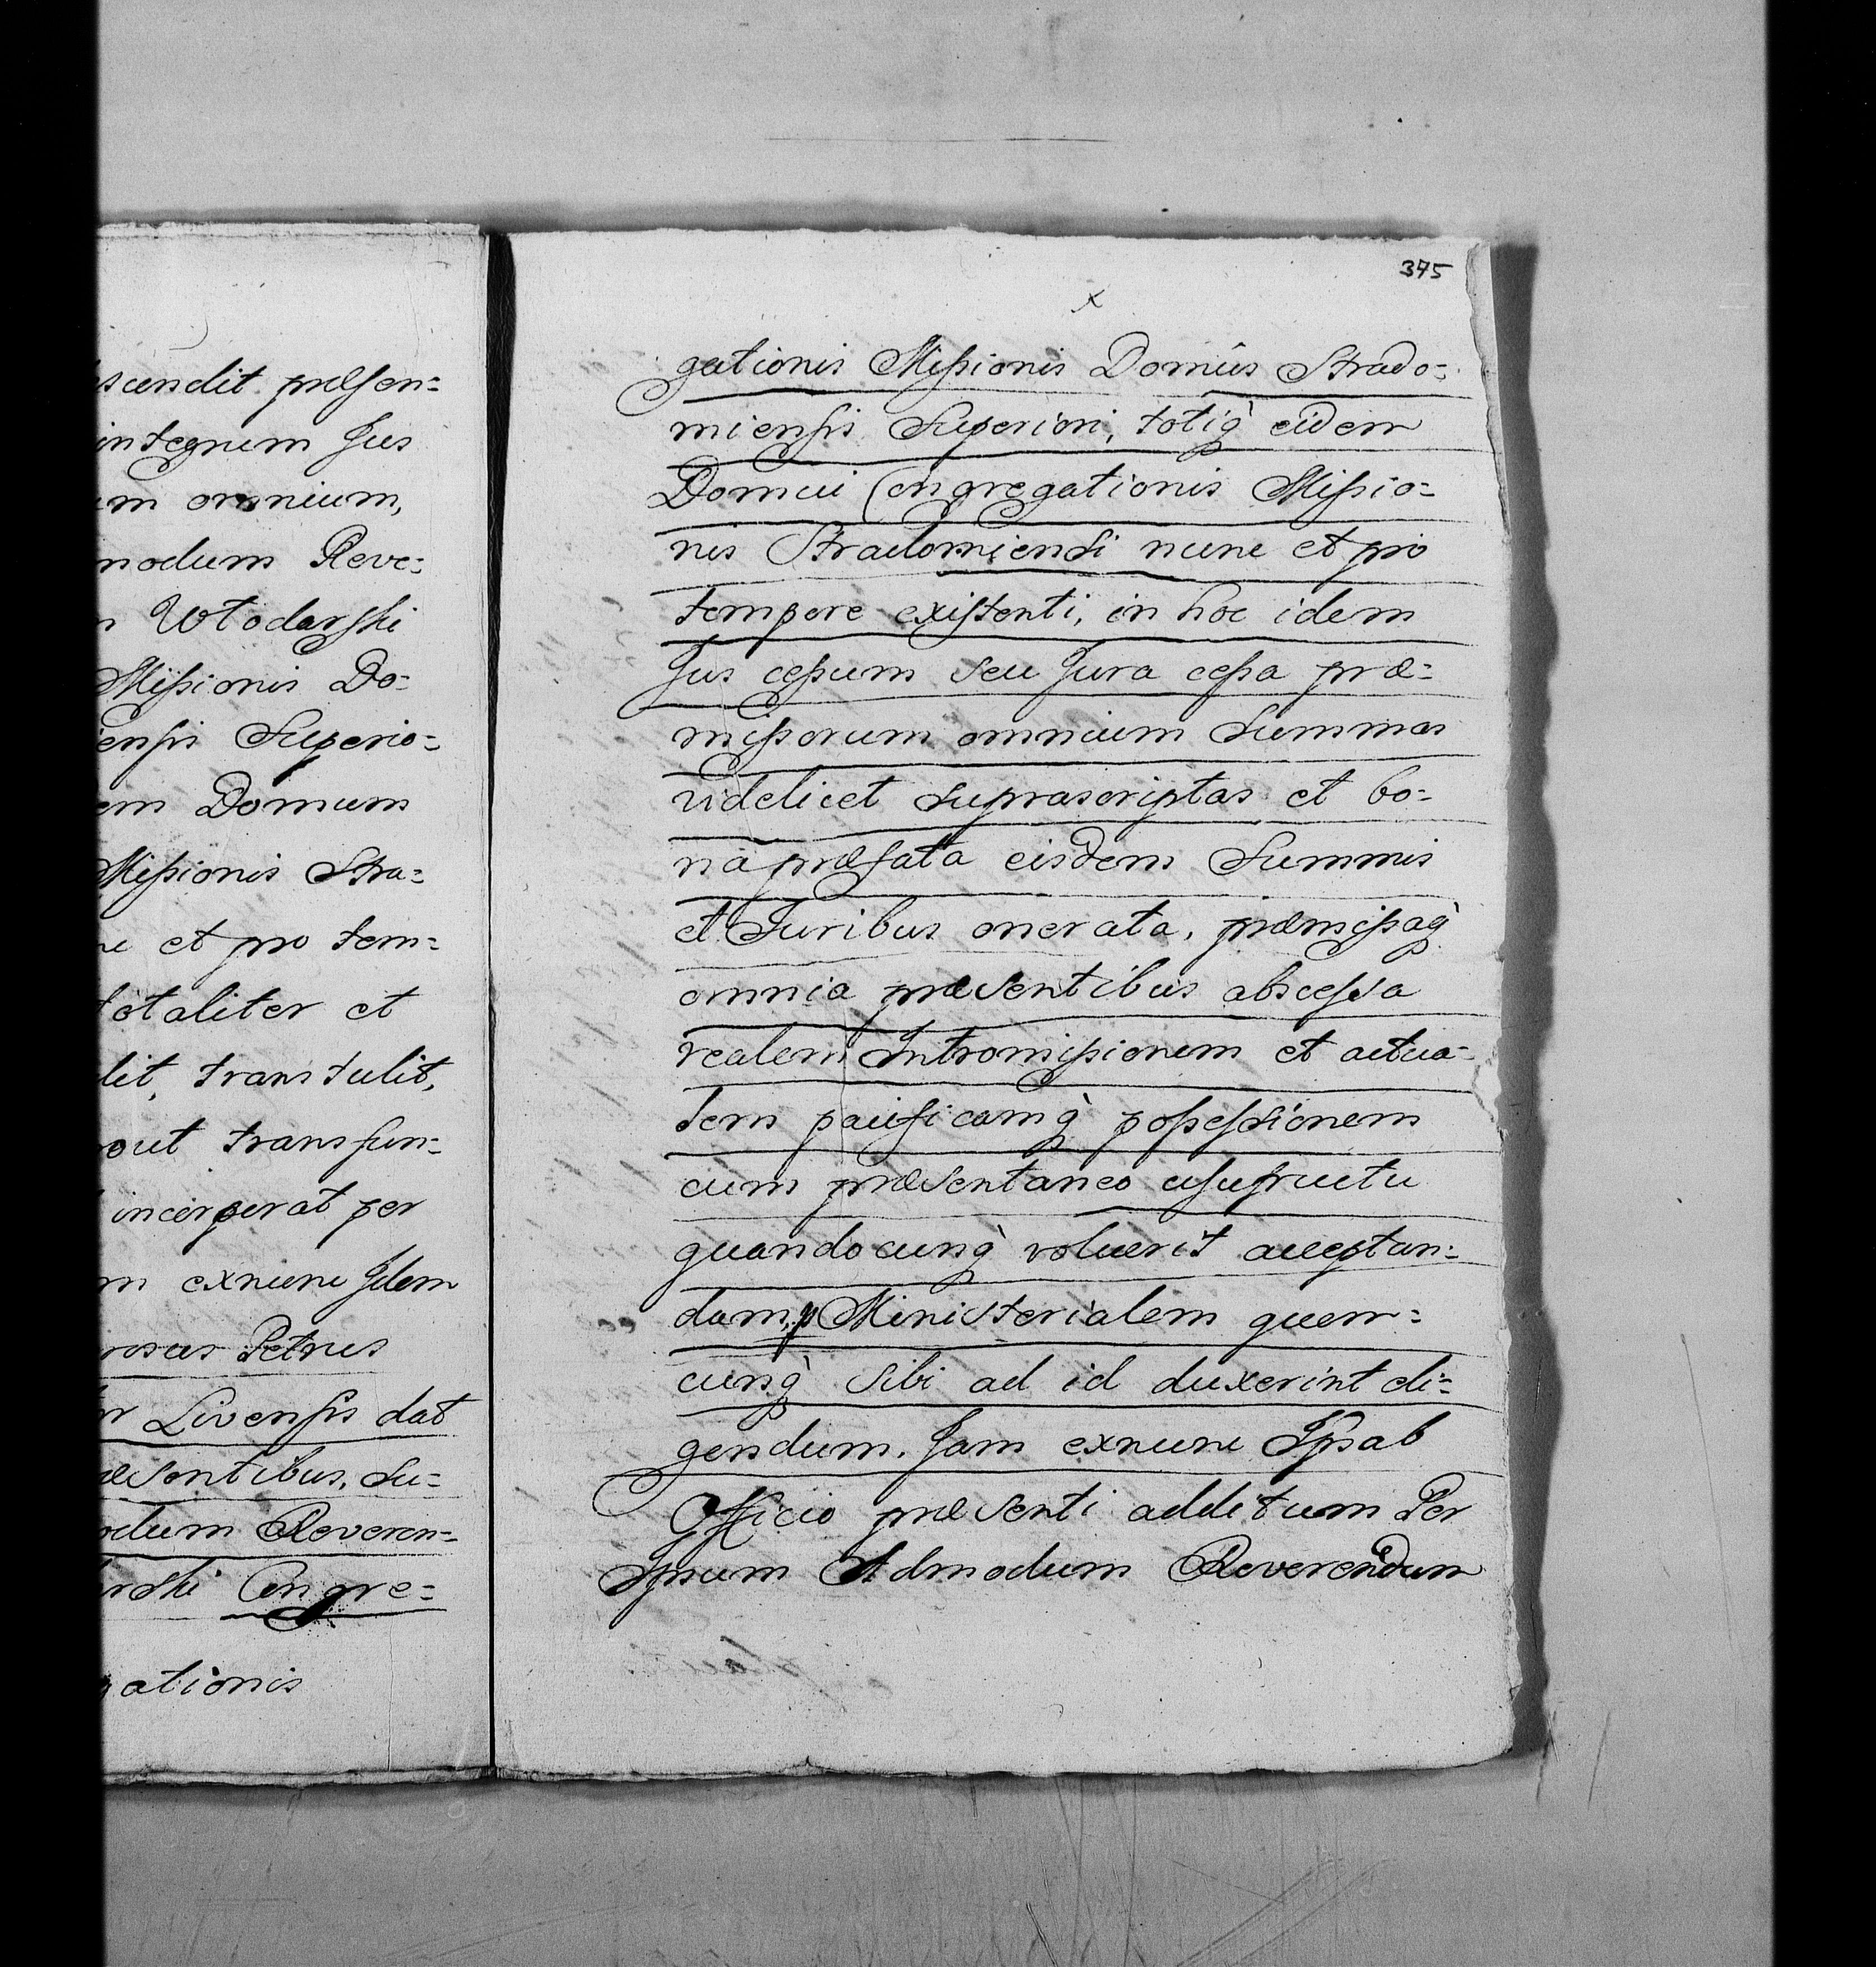 scendit præsen=
integrum Jus
um omnium,
modum Reve=
n Włodarski
Missionis Do=
ensis Superio=
em Domum
Missionis Stra=
et pro tem=
totaliter et
dit, transtulit,
out transfun=
incorporat per
m exnunc Idem
rosus Petrus
r Livensis dat
æsentibus, Su=
odum Reveren=
rski Congre=
gationis
375
x
gationis Missionis Domûs Strado=
miensis Superiori, totiq̀ eidem
Domui Congregationis Missio=
nis Stradomiensi nunc et pro
tempore existenti, in hoc idem
Jus cessum seu Jura cessa præ=
missorum omnium Summas
videlicet suprascriptas et bo=
na præfata eisdem Summis
et Juribus onerata, præmissaq̀
omnia præsentibus abscessa
realem Intromissionem et actua=
lem pacificamq̀ possessionem
cum præsentaneo usufructu
quandocunq̀ voluerit acceptan=
dam, p Ministerialem quem=
cunq̀ sibi ad id duxerint eli=
gendum. Jam exnunc Ipsab
Officio præsenti additum Per
Ipsum Admodum Reverendum